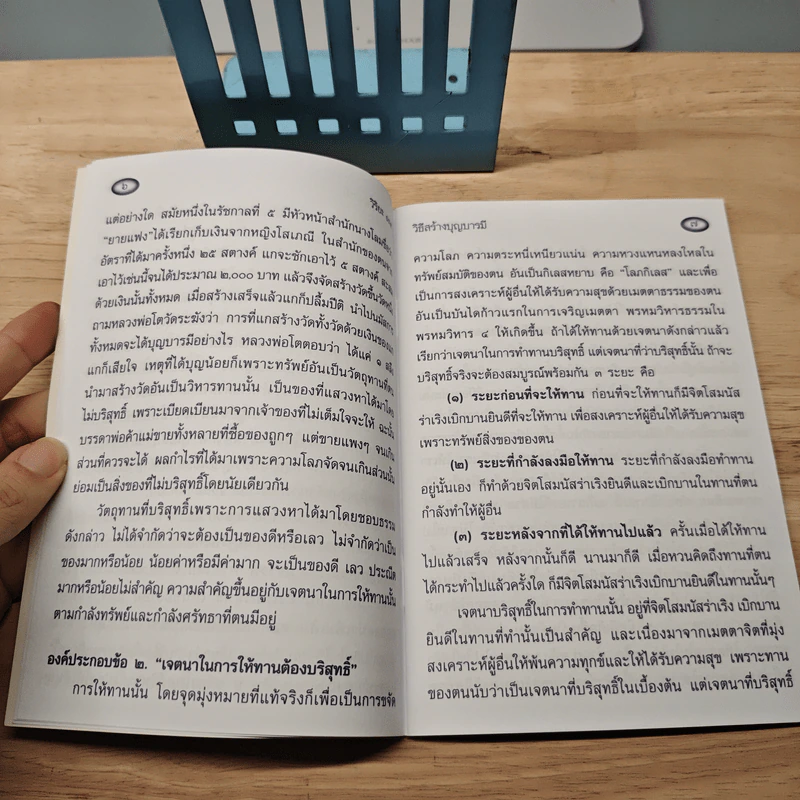 ๖
แต่อย่างใด สมัยหนึ่งในรัชกาลที่ ๕ มีหัวหน้าสำนักนางโลมชื่อ
“ยายแฟง” ได้เรียกเก็บเงินจากหญิงโสเภณี ในสำนักของตนจาก
อัตราที่ได้มาครั้งหนึ่ง ๒๕ สตางค์ แกจะชักเอาไว้ ๕ สตางค์
เอาไว้เช่นนี้จนได้ประมาณ ๒,๐๐๐ บาท แล้วจึงจัดสร้างวัดขึ้นวัดหนึ่ง
ด้วยเงินนั้นทั้งหมด เมื่อสร้างเสร็จแล้วแกก็ปลื้มปีติ นำไปนมัสการ
ถามหลวงพ่อโตวัดระฆังว่า การที่แกสร้างวัดทั้งวัดด้วยเงินของแก
ทั้งหมดจะได้บุญบารมีอย่างไร หลวงพ่อโตตอบว่า ได้แค่ ๑
แกก็เสียใจ เหตุที่ได้บุญน้อยก็เพราะทรัพย์อันเป็นวัตถุทานที่ตน
นำมาสร้างวัดอันเป็นวิหารทานนั้น เป็นของที่แสวงหาได้มาโดย
ไม่บริสุทธิ์ เพราะเบียดเบียนมาจากเจ้าของที่ไม่เต็มใจจะให้ ฉะนั้น
บรรดาพ่อค้าแม่ขายทั้งหลายที่ซื้อของถูกๆ แต่ขายแพงๆ จนเกิน
ส่วนที่ควรจะได้ ผลกำไรที่ได้มาเพราะความโลภจัดจนเกินส่วนนั้น
ย่อมเป็นสิ่งของที่ไม่บริสุทธิ์โดยนัยเดียวกัน
วัตถุทานที่บริสุทธิ์เพราะการแสวงหาได้มาโดยชอบธรรม
ดังกล่าว ไม่ได้จำกัดว่าจะต้องเป็นของดีหรือเลว ไม่จำกัดว่าเป็น
ของมากหรือน้อย น้อยค่าหรือมีค่ามาก จะเป็นของดี เลว ประณีต
มากหรือน้อยไม่สำคัญ ความสำคัญขึ้นอยู่กับเจตนาในการให้ทานนั้น
ตามกำลังทรัพย์และกำลังศรัทธาที่ตนมีอยู่
องค์ประกอบข้อ ๒. “เจตนาในการให้ทานต้องบริสุทธิ์”
การให้ทานนั้น โดยจุดมุ่งหมายที่แท้จริงก็เพื่อเป็นการขจัด
วิธีสร้างบุญบารมี
๗
ความโลภ ความตระหนี่เหนียวแน่น ความหวงแหนหลงใหลใน
ทรัพย์สมบัติของตน อันเป็นกิเลสหยาบ คือ “โลภกิเลส” และเพื่อ
เป็นการสงเคราะห์ผู้อื่นให้ได้รับความสุขด้วยเมตตาธรรมของตน
อันเป็นบันไดก้าวแรกในการเจริญเมตตา พรหมวิหารธรรมใน
พรหมวิหาร ๔ ให้เกิดขึ้น ถ้าได้ให้ทานด้วยเจตนาดังกล่าวแล้ว
เรียกว่าเจตนาในการทำทานบริสุทธิ์ แต่เจตนาที่ว่าบริสุทธิ์นั้น ถ้าจะ
บริสุทธิ์จริงจะต้องสมบูรณ์พร้อมกัน ๓ ระยะ คือ
(๑) ระยะก่อนที่จะให้ทาน ก่อนที่จะให้ทานก็มีจิตโสมนัส
ร่าเริงเบิกบานยินดีที่จะให้ทาน เพื่อสงเคราะห์ผู้อื่นให้ได้รับความสุข
เพราะทรัพย์สิ่งของของตน
(๒) ระยะที่กำลังลงมือให้ทาน ระยะที่กำลังลงมือทำทาน
อยู่นั้นเอง ก็ทำด้วยจิตโสมนัสร่าเริงยินดีและเบิกบานในทานที่ตน
กำลังทำให้ผู้อื่น
(๓) ระยะหลังจากที่ได้ให้ทานไปแล้ว ครั้นเมื่อได้ให้ทาน
ไปแล้วเสร็จ หลังจากนั้นก็ดี นานมาก็ดี เมื่อหวนคิดถึงทานที่ตน
ได้กระทำไปแล้วครั้งใด ก็มีจิตโสมนัสร่าเริงเบิกบานยินดีในทานนั้นๆ
เจตนาบริสุทธิ์ในการทำทานนั้น อยู่ที่จิตโสมนัสร่าเริง เบิกบาน
ยินดีในทานที่ทำนั้นเป็นสำคัญ และเนื่องมาจากเมตตาจิตที่มุ่ง
สงเคราะห์ผู้อื่นให้พ้นความทุกข์และให้ได้รับความสุข เพราะทาน
ของตนนับว่าเป็นเจตนาที่บริสุทธิ์ในเบื้องต้น แต่เจตนาที่บริสุทธิ์